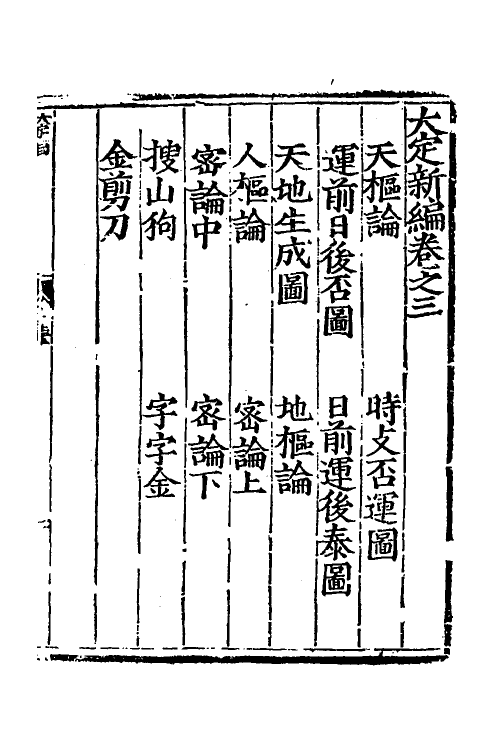 大定新編卷之三
天樞論 時攴否運圖
運前日後否圖 日前運後泰圖
天地生成圖 地樞論
人樞論 密論上
密論中 密論下
搜山狗 字字金
金剪刀